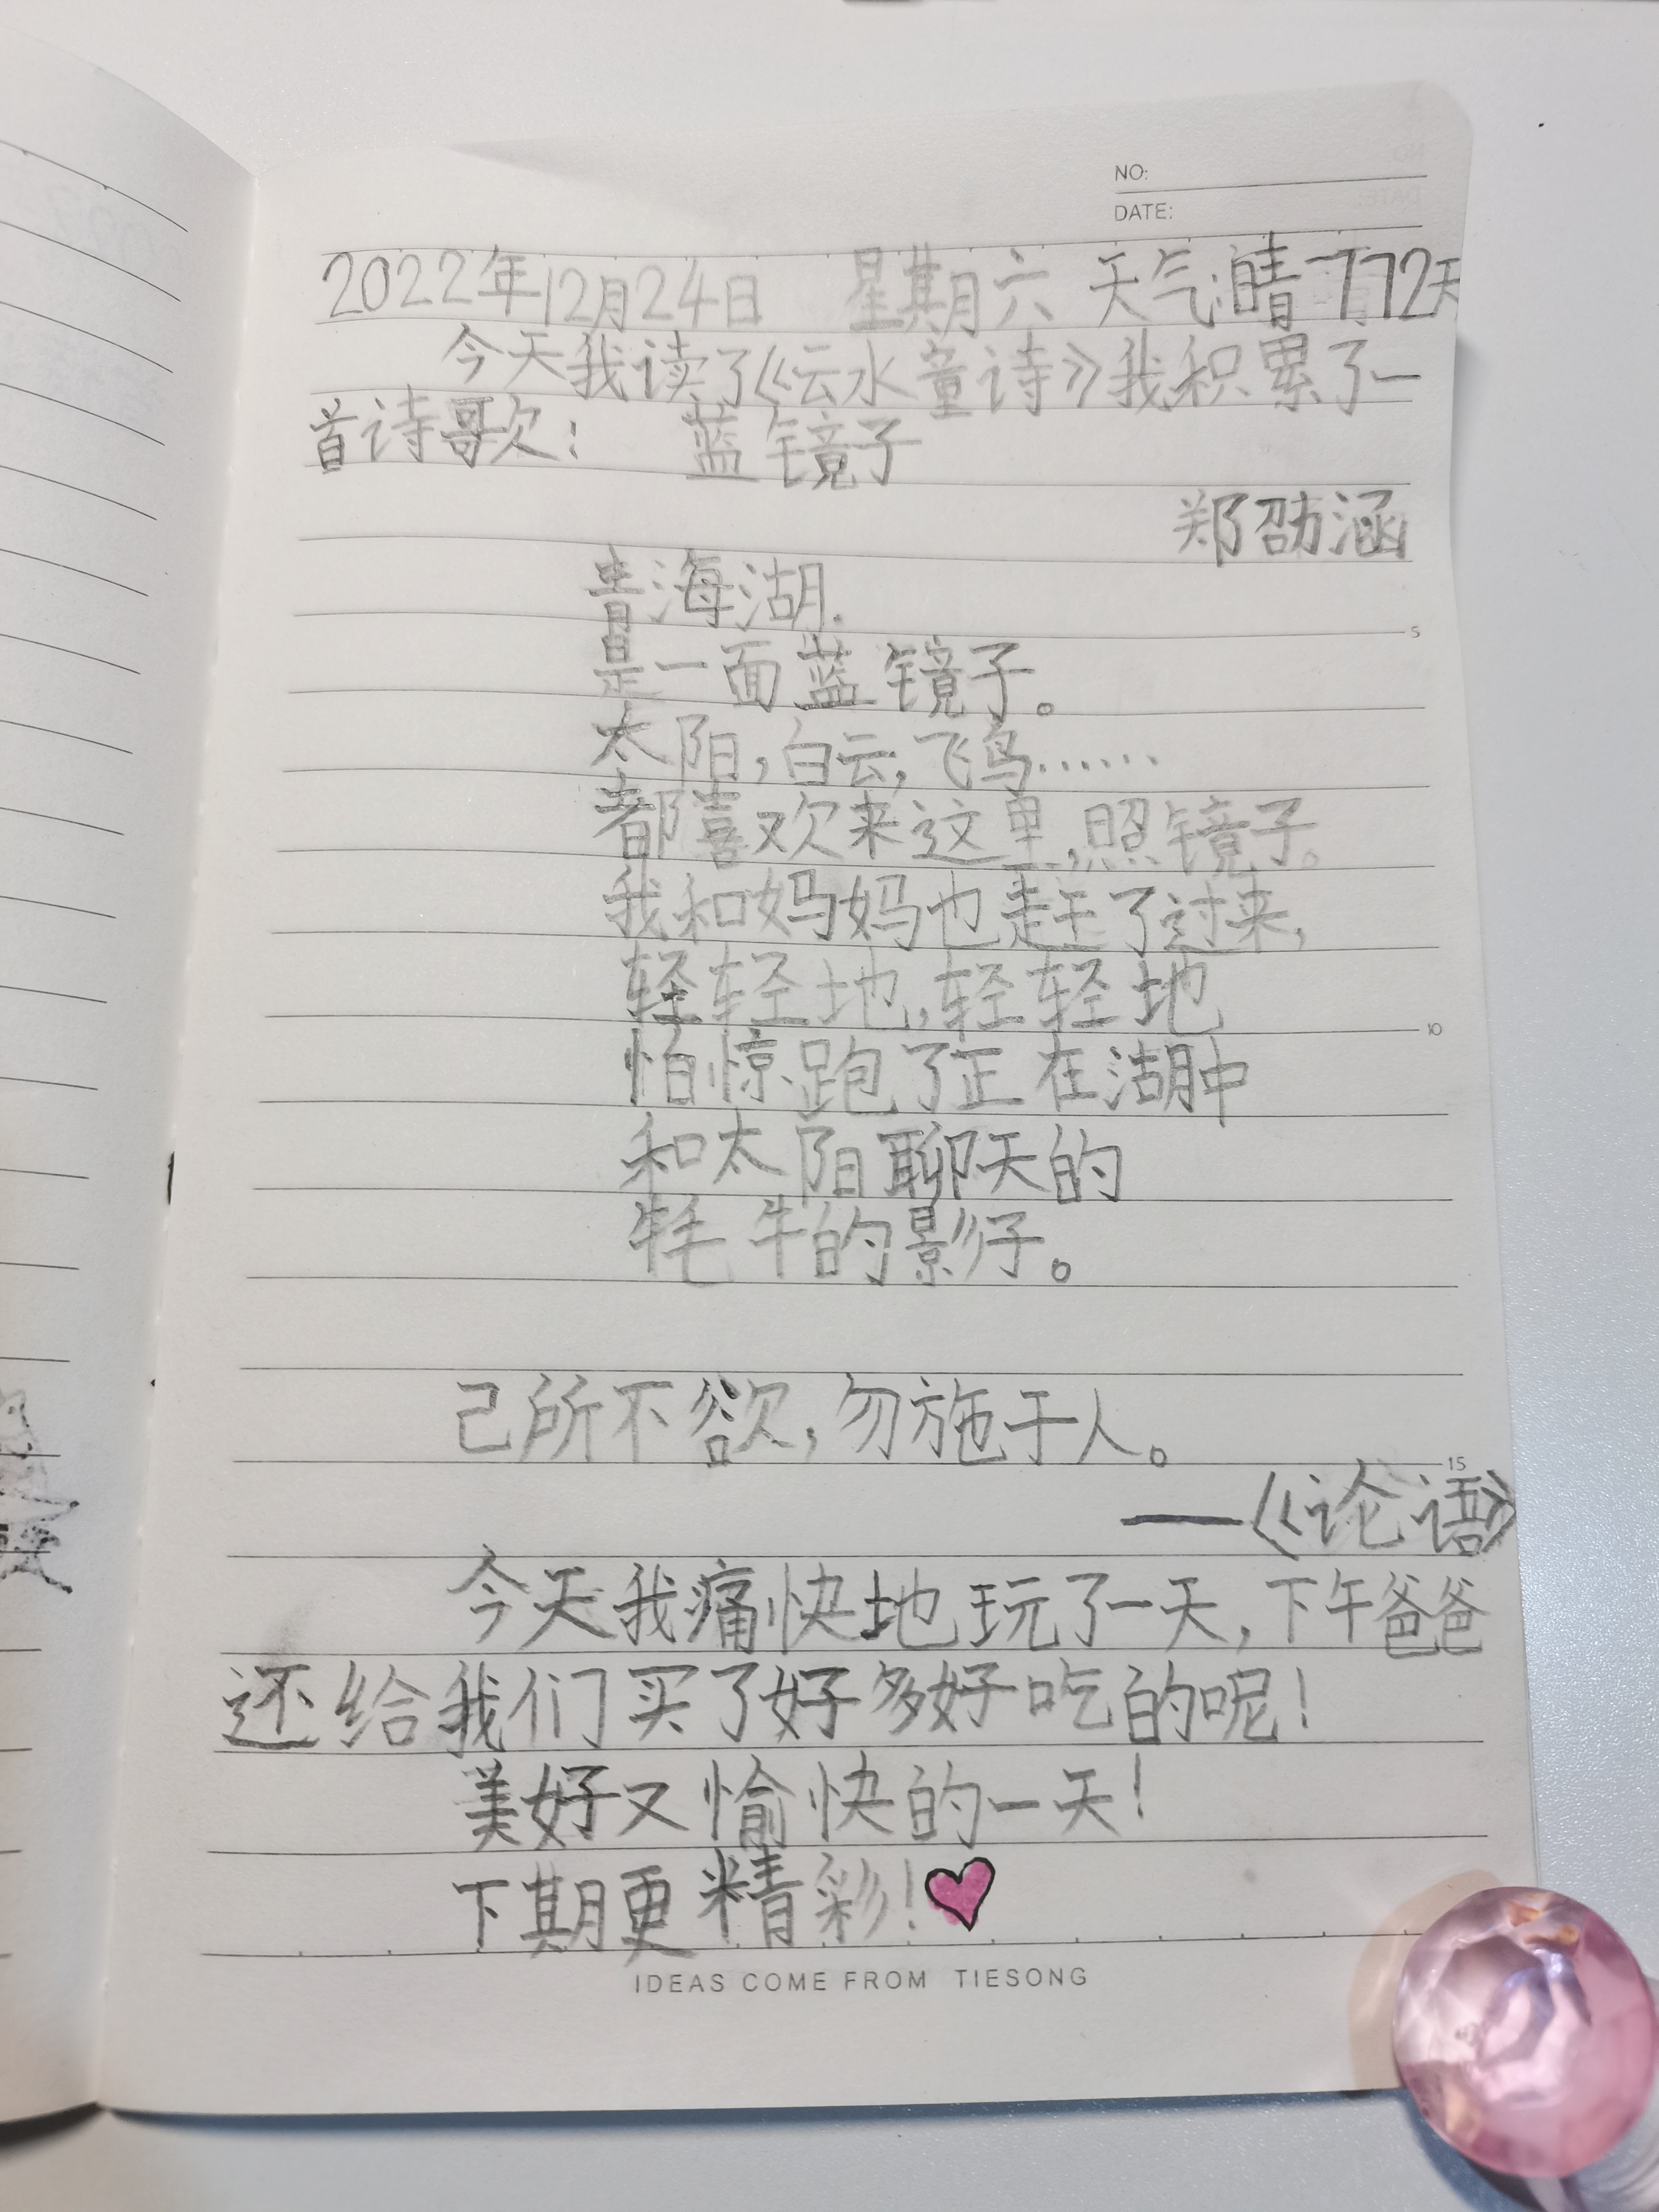 NO:
DATE:
2022年12月24日 星期六 天气:晴 772天
今天我读了《云水童诗》我积累了一
首诗歌: 蓝镜子
郑劭涵
青海湖.
是一面蓝镜子。
5
太阳,白云,飞鸟……
都喜欢来这里,照镜子。
我和妈妈也走了过来,
轻轻地,轻轻地
10
怕惊跑了正在湖中
和太阳聊天的
牦牛的影子。
己所不欲,勿施于人。
15
——《论语》
今天我痛快地玩了一天,下午爸爸
还给我们买了好多好吃的呢!
美好又愉快的一天!
下期更精彩!
IDEAS COME FROM TIESONG